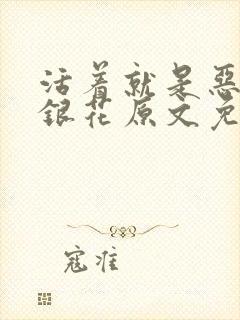 活着就是恶
銀花原文免
寇准